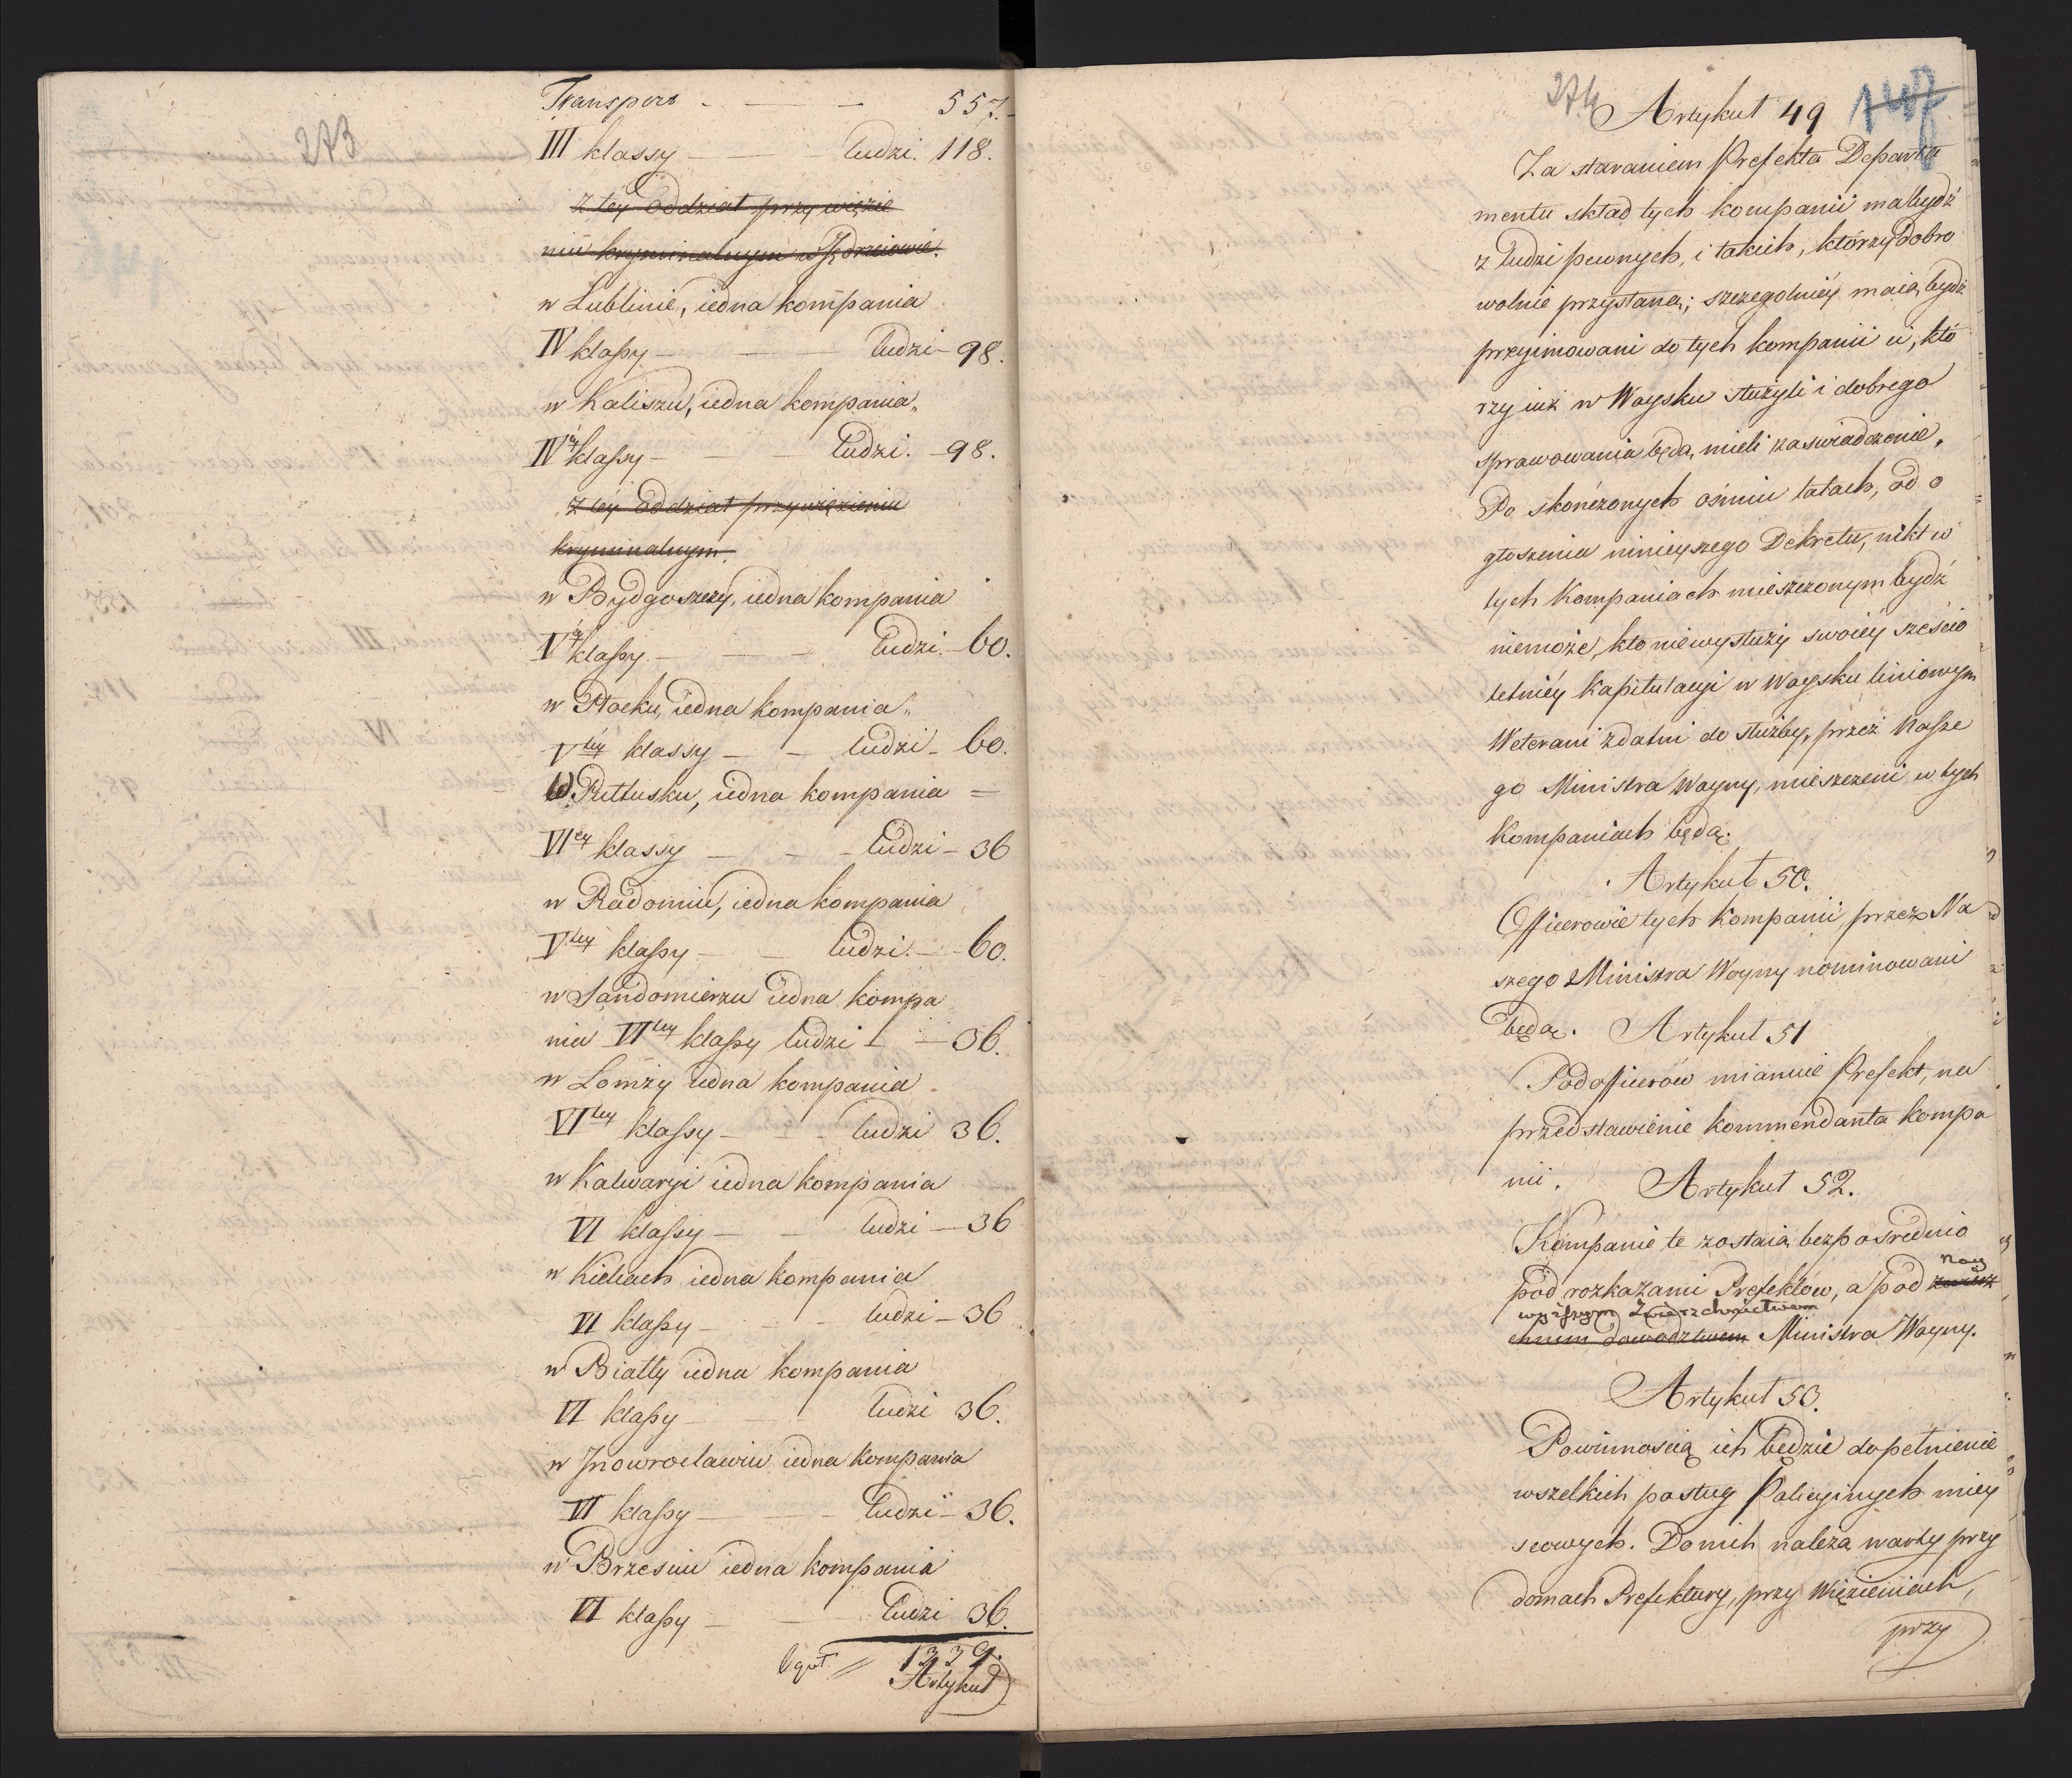 273
Transport - — - 557.
III klassy — — ludzi. 118.
z tey oddział przy więzie
niu kryminalnym w Jędrzeiowie.
w Lublinie, iedna kompania
IV klaſsy — — ludzi - 98.
w Kaliszu, iedna kompania„
IV éy klaſsy — — ludzi. - 98.
z téy oddział przy więzieniu
kryminalnym.
w Bydgoszczy, iedna kompania
V éy klaſsy. — — ludzi. - 60.
w Płocku iedna kompania„
V téy klassy — - ludzi - 60.
W Pułtusku, iedna kompania =
VI ey klassy — - - ludzi - 36
w Radomiu, iedna kompania
V tey klaſsy — — ludzi. — 60.
w Sandomierzu iedna kompa
nia VI tey klaſsy ludzi — 36.
w Łomży iedna kompania
VI tey klaſsy — - ludzi 36.
w Kalwaryi iedna kompania
VI klaſsy — - ludzi — 36
w Kielcach iedna kompania
VI klaſsy — - ludzi - 36
w Biały iedna kompania
VI klaſsy — ludzi 36.
w Inowrocławiu iedna kompania
VI klaſsy — - ludzi - 36.
w Brześciu iedna kompania
VI klaſsy — — ludzi 36.
Ogół = 1339.
Artykuł
274
147
Artykuł 49
Za staraniem Prefekta Departa
mentu skład tych kompanii ma bydź
z ludzi pewnych, i takich, którzy dobro
wolnie przystaną; szczegolniéy maią bydź
przyimowani do tych kompanii ci, któ
rzy iuż w Woysku służyli i dobrego
sprawowania będą mieli zaswiadczenie.
Po skończonych ośmiu latach, od o
głoszenia ninieyszego Dekretu, nikt w
tych Kompaniach mieszczonym bydź
niemoże, kto niewysłuży swoiéy sześcio
letniéy Kapitulacyi w Woysku liniowym
Weterani zdatni do służby, przez Nasze
go Ministra Woyny, mieszczeni w tych
Kompaniach będą.
Artykuł 50.
Officerowie tych Kompanii przez Na
szego Ministra Woyny nominowani
będą. Artykuł 51
Podofficerów mianuie Prefekt, na
przedstawienie kommendanta kompa
nii. Artykuł 52.
Kompanie te zostaią bezpośrednio
pod rozkazami Prefektów, a pod zwierz nay
wyższym Zwierzchnictwem
chnim dowodztwem Ministra Woyny.
Artykuł 53.
Powinnoscią ich będzie dopełnienie
wszelkich posług Policyinych miey
scowych. Do nich należą warty przy
domach Prefektury, przy Więzieniach,
przy